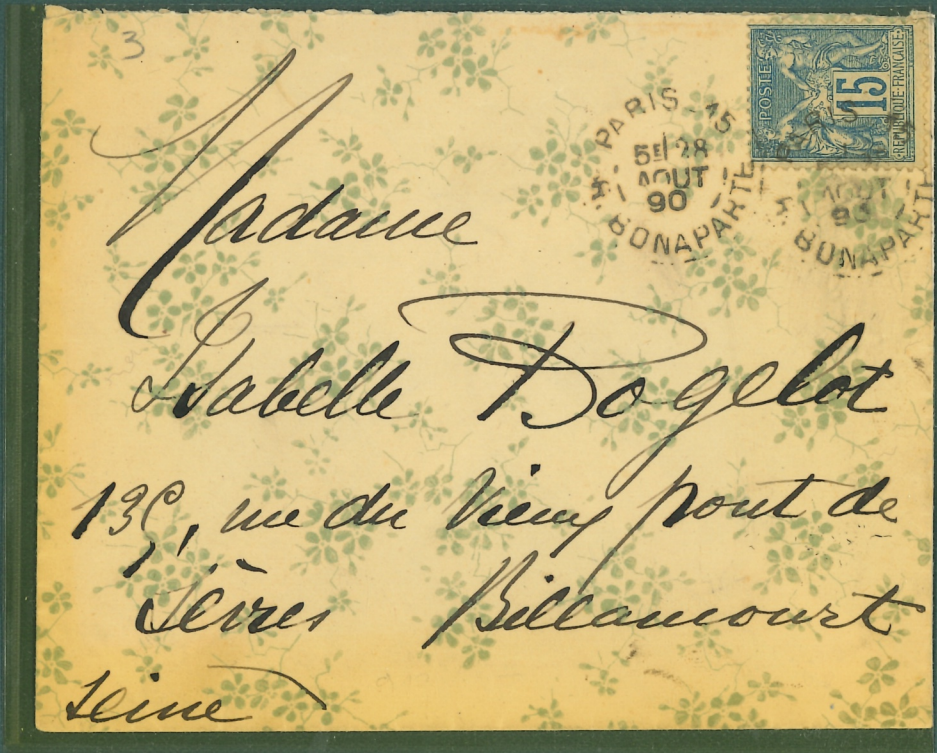 3
POSTE
15
REPUBLIQUE FRANÇAISE
PARIS-15
5E 28
AOUT
90
R. BONAPARTE
PARIS
AOUT
90
R. BONAPARTE
Madame
Isabelle Bogelot
139, rue du Vieux pont de
Sèvres Billancourt
Seine